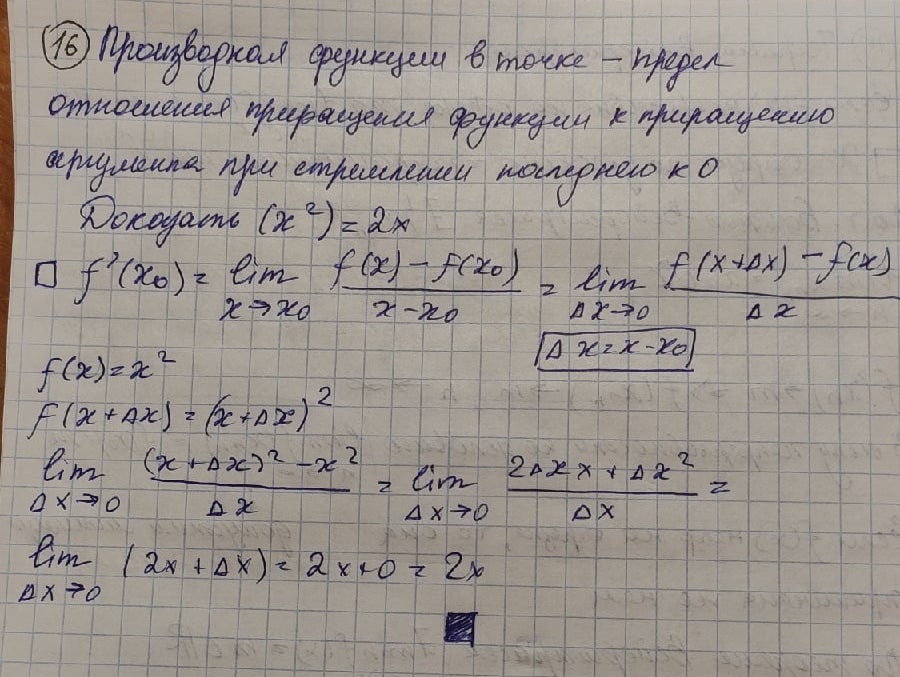 16 Производная функции в точке – предел
отношения приращения функции к приращению
аргумента при стремлении последнего к 0
Доказать (x²) = 2x
□ f'(x₀) = lim x→x₀ (f(x) – f(x₀))/(x–x₀) = lim Δx→0 (f(x+Δx) – f(x))/Δx
Δx=x–x₀
f(x)=x²
f(x+Δx) = (x+Δx)²
lim Δx→0 ((x+Δx)² – x²)/Δx = lim Δx→0 (2Δx x + Δx²)/Δx =
lim Δx→0 (2x + Δx) = 2x+0 = 2x
■